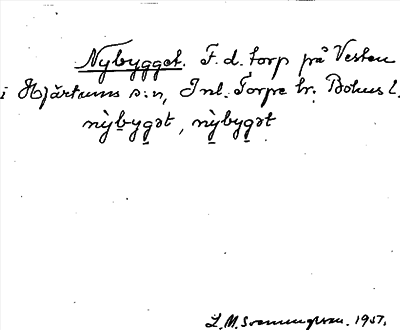 Nybygget. F. d. torp på Vesten
i Hjärtums s:n, Inl. Torpe hr. Bohus l.
nỳbyg̲ət, nỳ̲byg̲ət
L. M. Svenungsson. 1937.